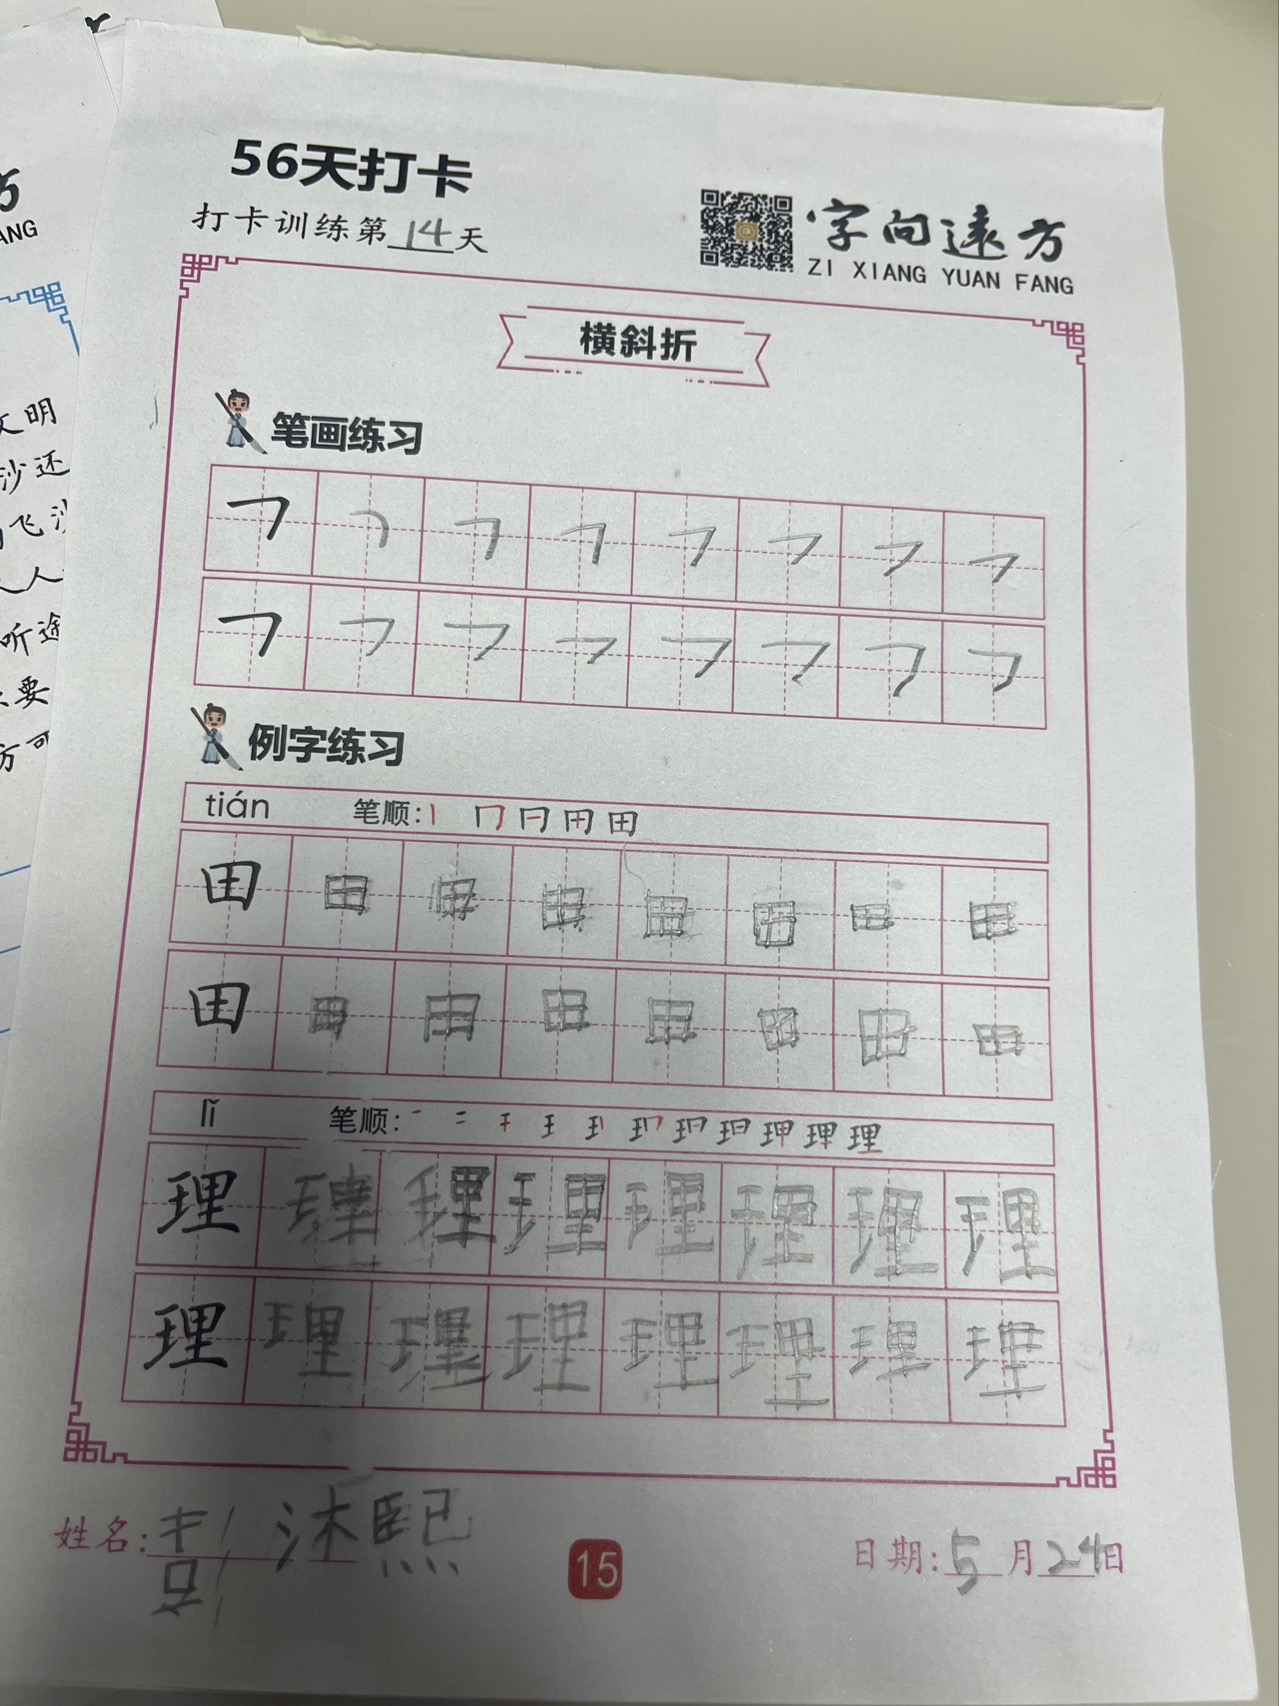 56天打卡
打卡训练第14天
字向远方
ZI XIANG YUAN FANG
横斜折
笔画练习
㇇ ㇇ ㇇ ㇇ ㇇ ㇇ ㇇ ㇇
㇇ ㇇ ㇇ ㇇ ㇇ ㇇ ㇇ ㇇
例字练习
tián 笔顺:
田 田 田 田 田 田 田 田
田 田 田 田 田 田 田 田
lǐ 笔顺:
理 理 理 理 理 理 理 理
理 理 理 理 理 理 理 理
姓名:彭沐熙
15
日期:5月24日
方
ANG
文明
沙还
飞沙
人人
听途
要
方可